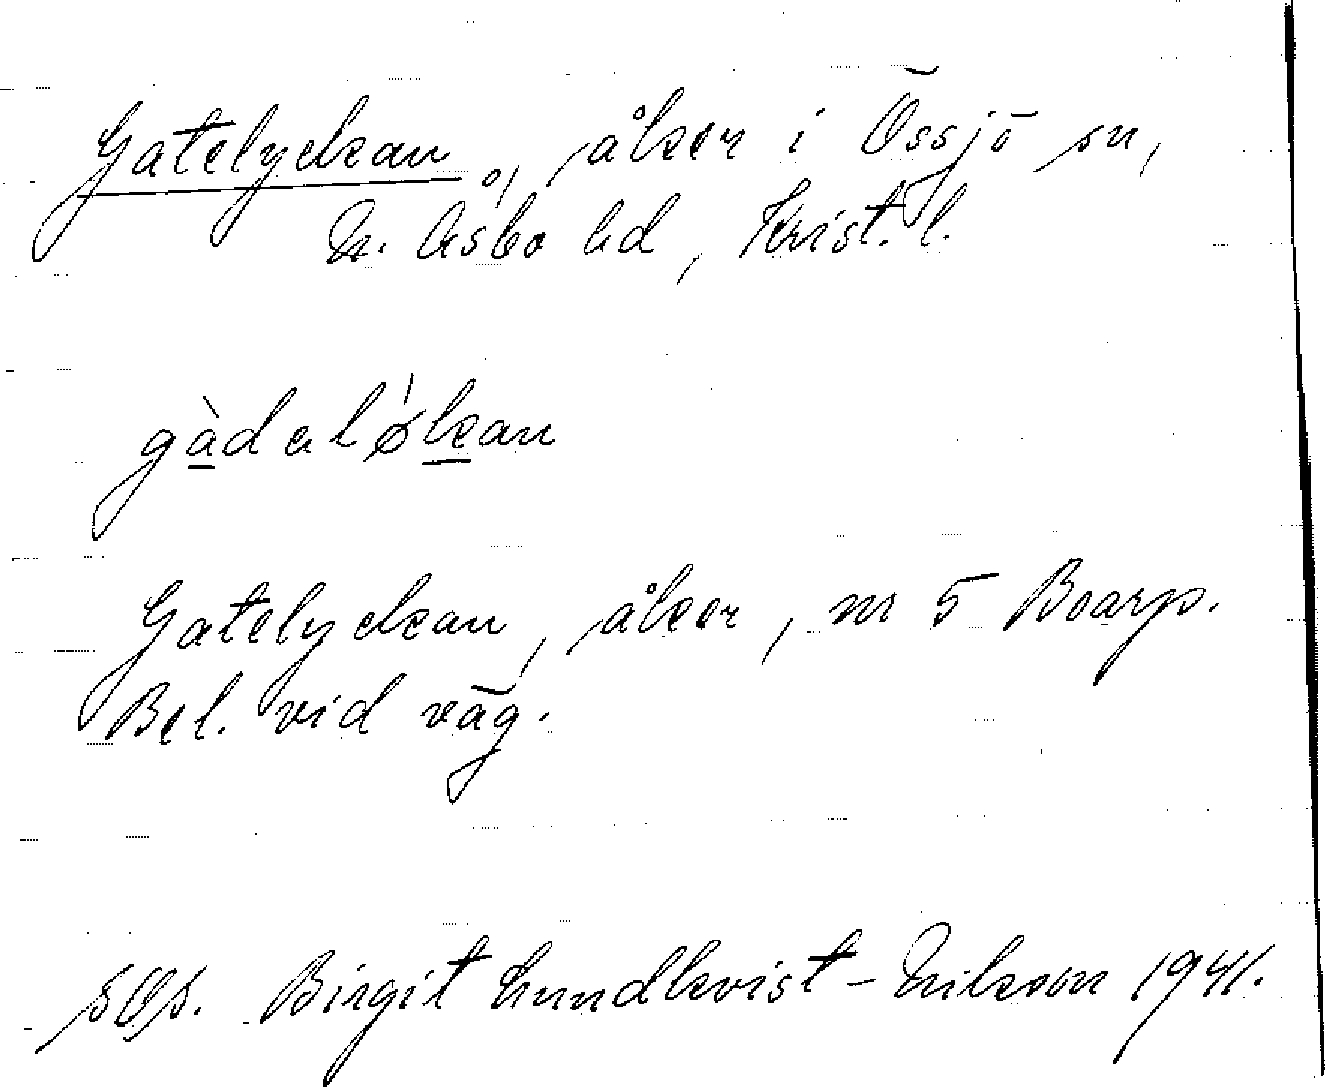 Gatelyckan, åker i Össjö sn,
N. Åsbo hd, Krist. l.
gàdaløkan
Gatelyckan, åker, nr 5 Boarp.
Bel. vid väg.
Birgit Lundkvist-Erikson 1941.